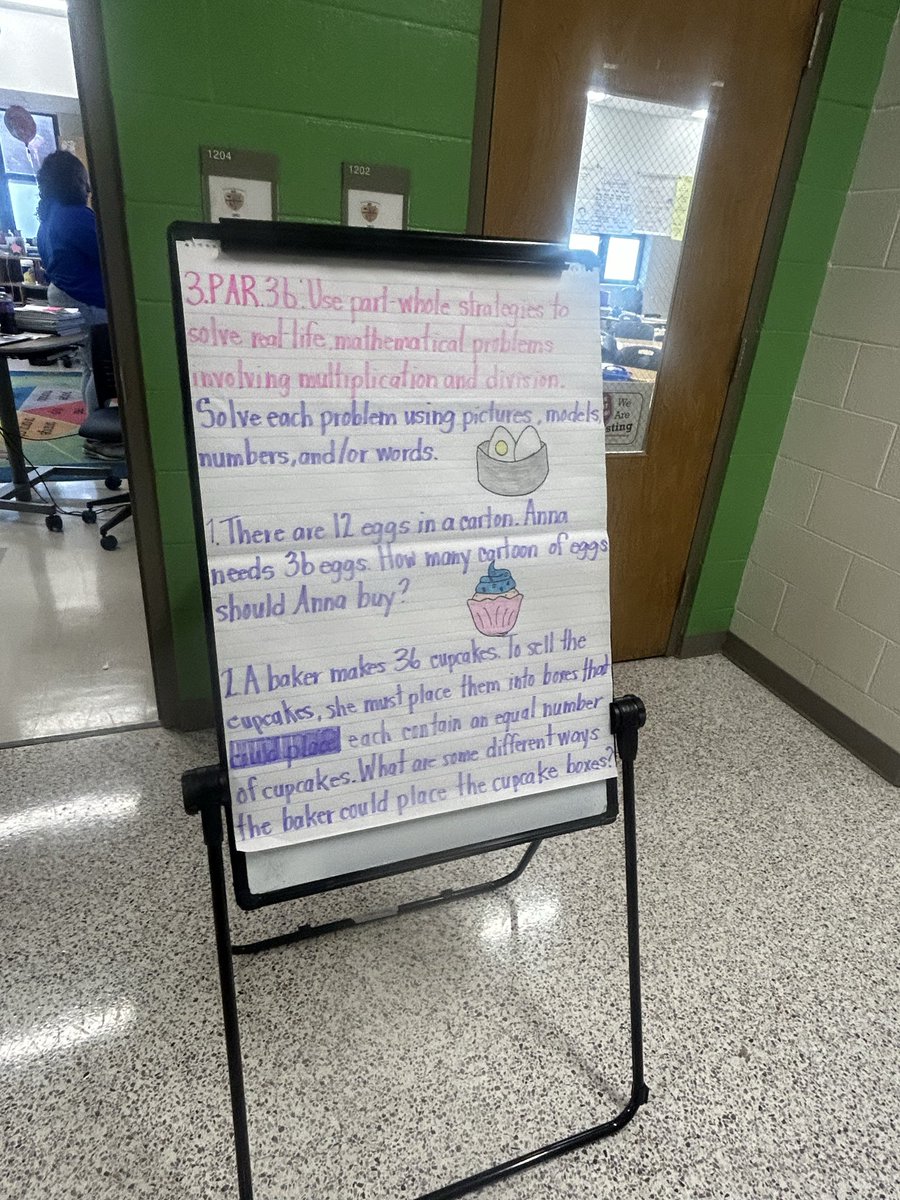 1204
1202
3.PAR.3b: Use part-whole strategies to
solve real life, mathematical problems
involving multiplication and division.
Solve each problem using pictures, models,
numbers, and/or words.
1. There are 12 eggs in a carton. Anna
needs 36 eggs. How many cartoon of eggs
should Anna buy?
2. A baker makes 36 cupcakes. To sell the
cupcakes, she must place them into boxes that
each contain an equal number
of cupcakes. What are some different ways
the baker could place the cupcake boxes?
We
Are
sting